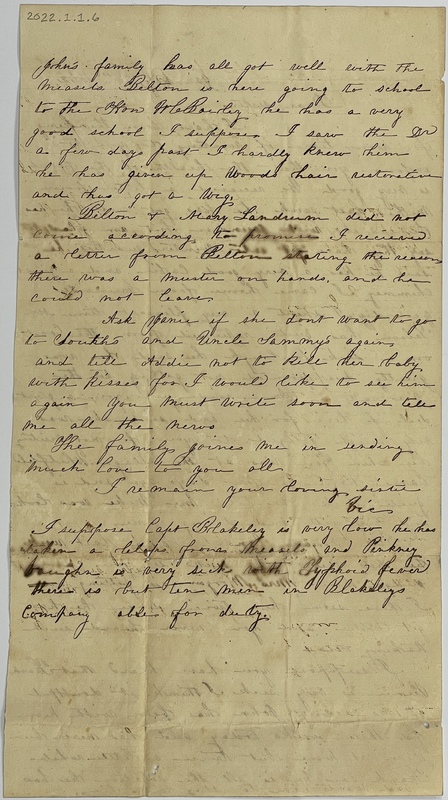 2022.1.1.6
John's family has all got well with the
measels Belton is here going to school
to the Hon W C Bailey he has a very
good school I suppose I saw the Dr
a few days past I hardly knew him
he has given up Woods hair restorative
and has got a wig.
Belton & Mary Landrum did not
come according to promise I recieved
a letter from Belton stating the reason
there was a muster on hands, and he
could not leave
Ask Janie if she dont want to go
to and Uncle Sammy's again
and tell Addie not to kill her baby
with kisses for I would like to see him
again you must write soon and tell
me all the news
The family joines me in sending
much love to you all
I remain your loving sistie
Vic
I suppose Capt Blakeley is very low he has
taken a relaps from measels and Pinkney
Vaughn is very sick with Typhoid fever
there is but ten men in Blakelys
Company able for duty.